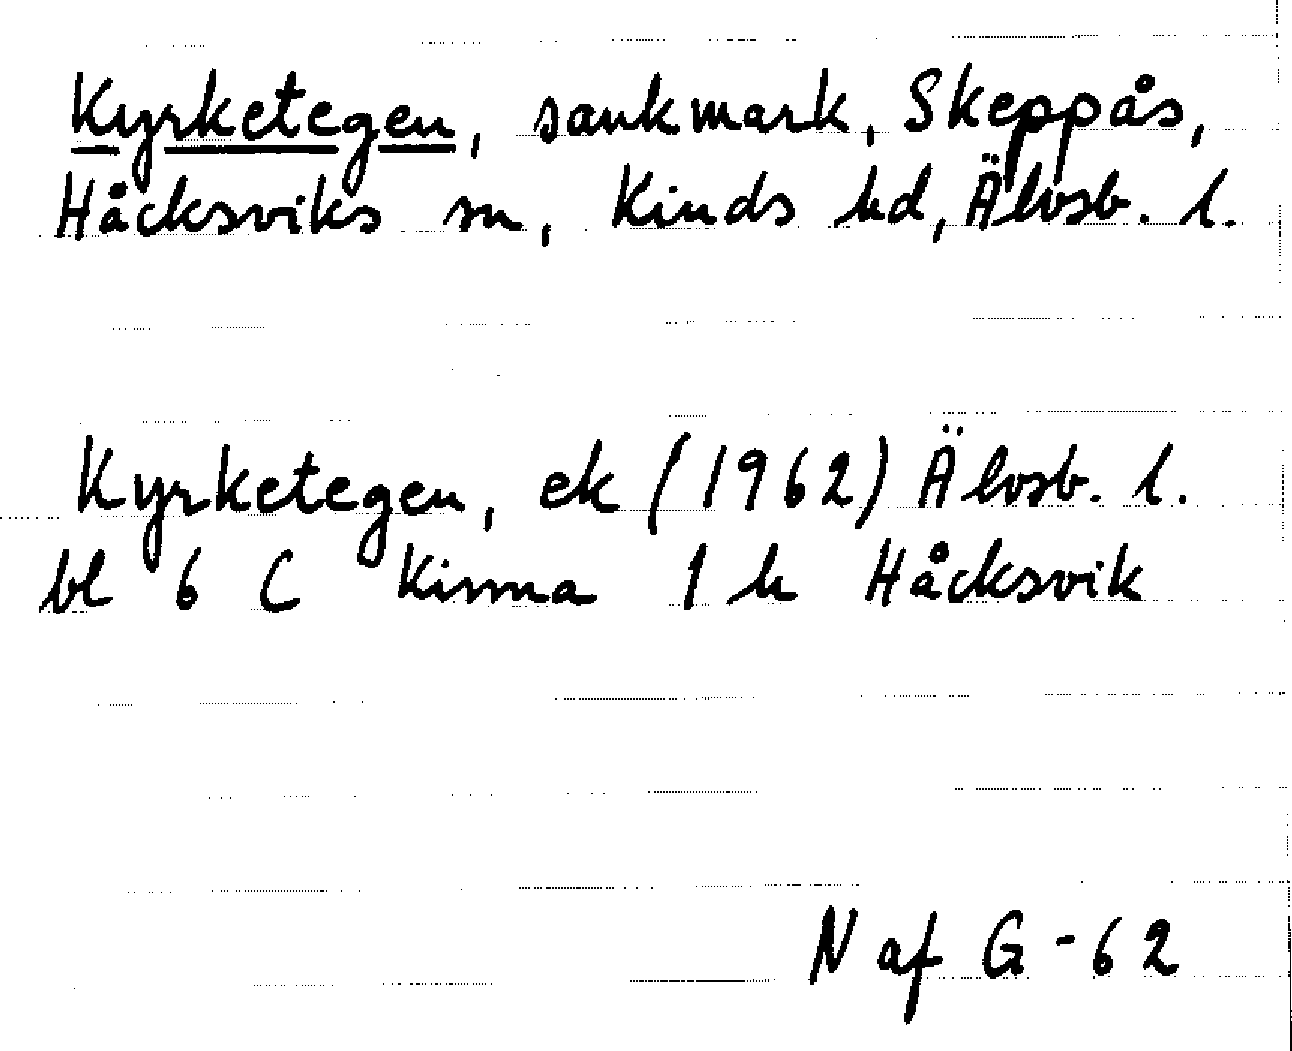 Kyrketegen, sankmark, Skeppås,
Håcksviks sn, Kinds hd, Älvsb. l.
Kyrketegen, ek (1962) Älvsb. l.
bl 6 C Kinna 1 h Håcksvik
N af G -62